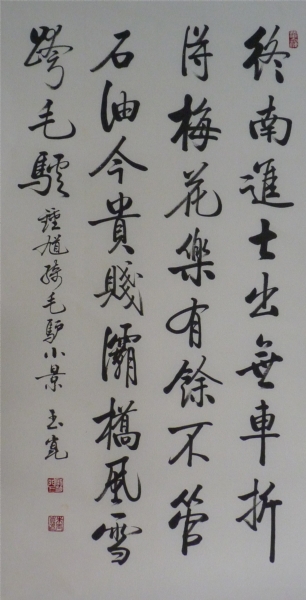 終南進士出無車折
得梅花樂有餘不管
石油今貴賤灞橋風雪
跨毛驢 鍾馗騎毛驴小景 玉寛